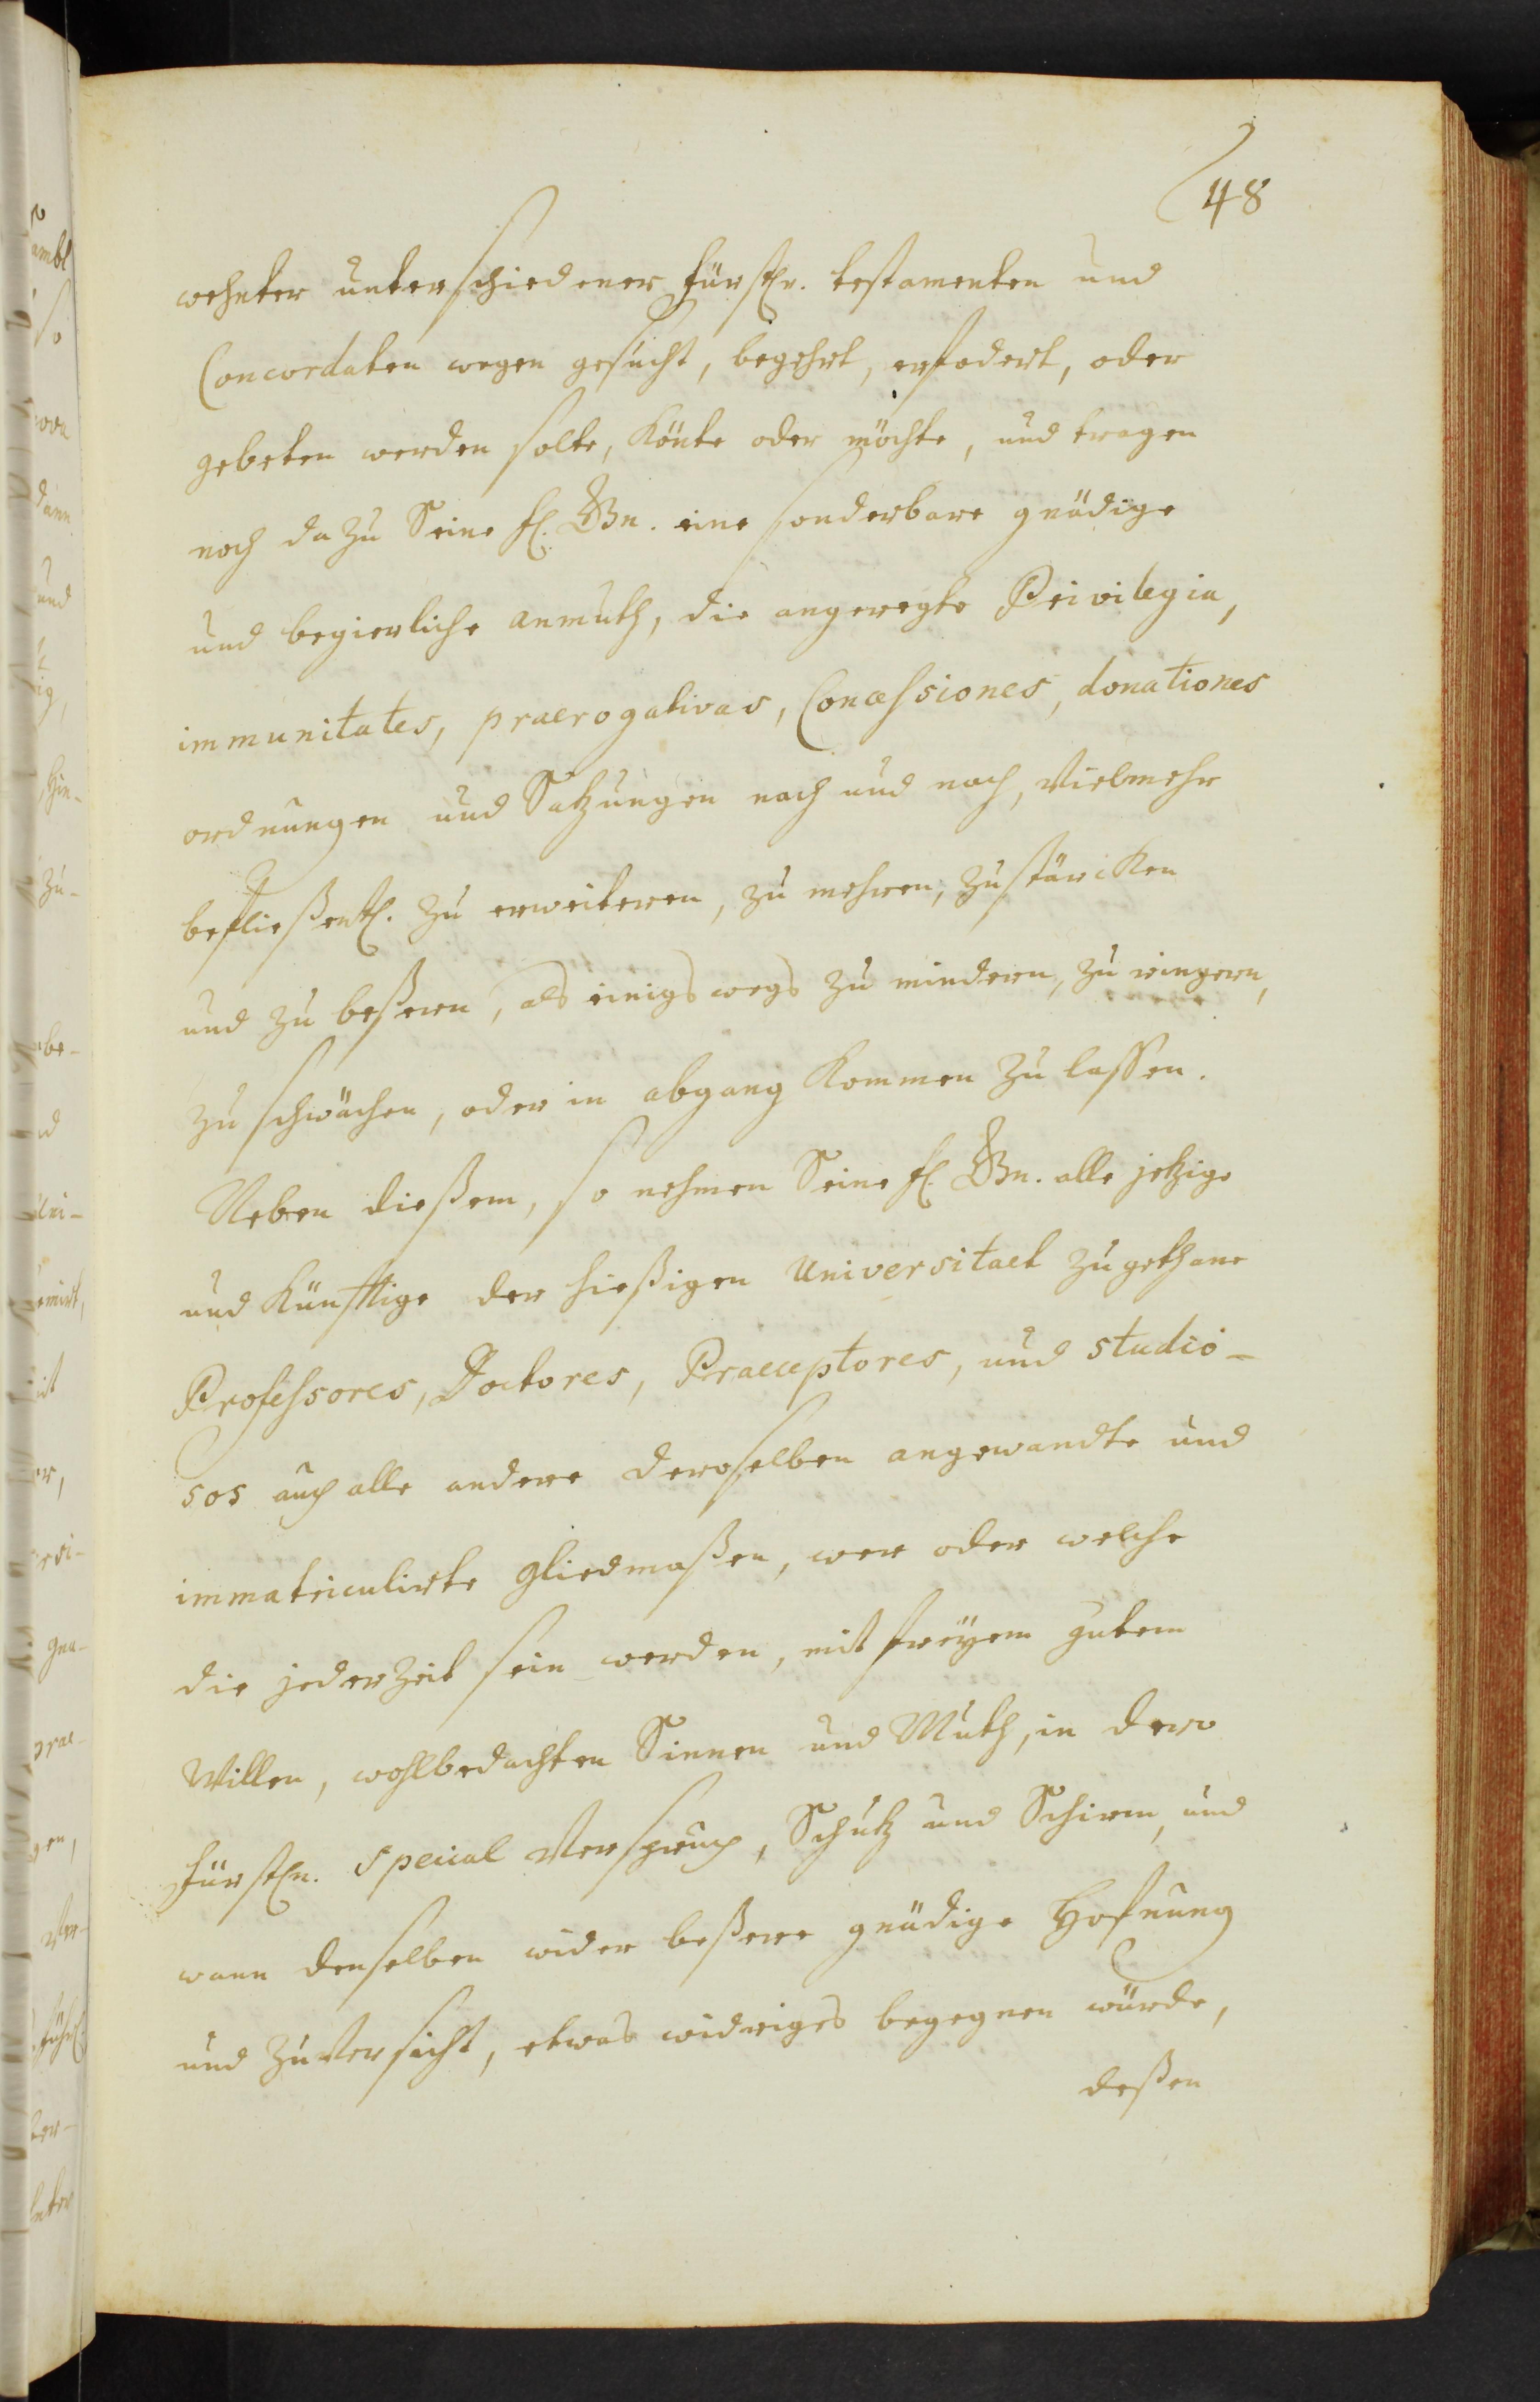 48
wehnter unterschiedener fürstlr. testamenten und
Concordaten wegen gesucht, begehrt, erfodert, oder
gebeten werden solte, könte oder möchte, und tragen
noch da zu Seine fl. Gn. eine sonderbare gnädige
und begierliche anmuth, die angeregte Privilegia,
immunitates, praerogativas, Concessiones, donationes
ordnungen und Satzungen nach und nach, vielmehr
befließentl. zu erweiteren, zu mehren, zu stärcken
und zu beßeren, als einigs wegs zu mindern, zu ringern,
zu schwächen, oder in abgang kommen zu lassen.
Neben dießem, so nehmen Seine fl. Gn. alle jetzige
und künfftige der hießigen Universitaet zugethane
Professores, Doctores, Praeceptores, und studio-
sos auch alle andere deroselben angewandte und
immatriculirte gliedmaßen, wer oder welche
die jederzeit sein werden, mit freÿem gutem
Willen, wohlbedachten Sinnen und Muth, in dero
fürstln. Special Verspruch, Schutz und Schirm, und
wann denselben wider beßere gnädige Hofnung
und zuversicht, etwas widriges begegnen würde,
deßen